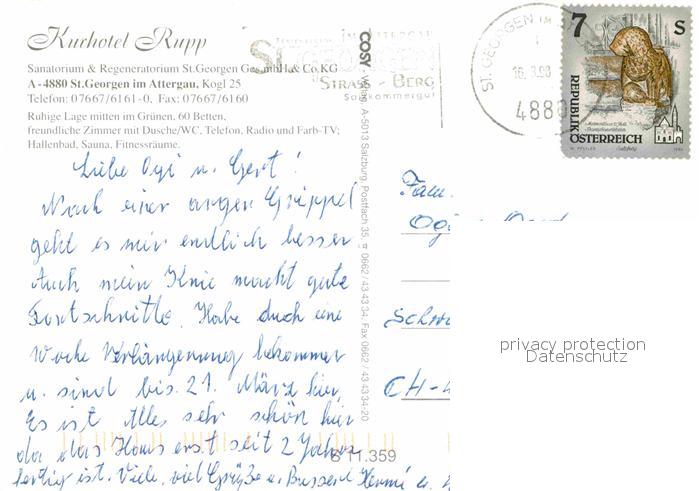 Kurhotel Rupp
Sanatorium & Regeneratorium St.Georgen Ges.mbH & Co.KG
A-4880 St.Georgen im Attergau, Kogl 25
Telefon: 07667/6161-0, Fax: 07667/6160
Ruhige Lage mitten im Grünen, 60 Betten,
freundliche Zimmer mit Dusche/WC, Telefon, Radio und Farb-TV;
Hallenbad, Sauna, Fitnessräume.
IM ATTERGAU
ST. GEORGEN
STRASS - BERG
Salzkammergut
COSY - Verlag, A-5013 Salzburg, Postfach 35, ☎ 0662/434334, Fax 0662/434334-20
ST. GEORGEN IM
16. 3. 98
4880
7 S
REPUBLIK
ÖSTERREICH
Liebe Ogi u. Gert!
Nach einer argen Grippel
geht es mir endlich besser
Auch mein Knie macht gute
Fortschnitte. Habe duch eine
Woche Verlängerung bekommen
u. sind bis 21. März hier.
Es ist Alles sehr schön hier
da das Haus erst seit 2 Jahren
fertig ist. Viele, viel Grüße u. Busserl Hermi u.
Fam.
CH-
privacy protection
Datenschutz
S 11.359